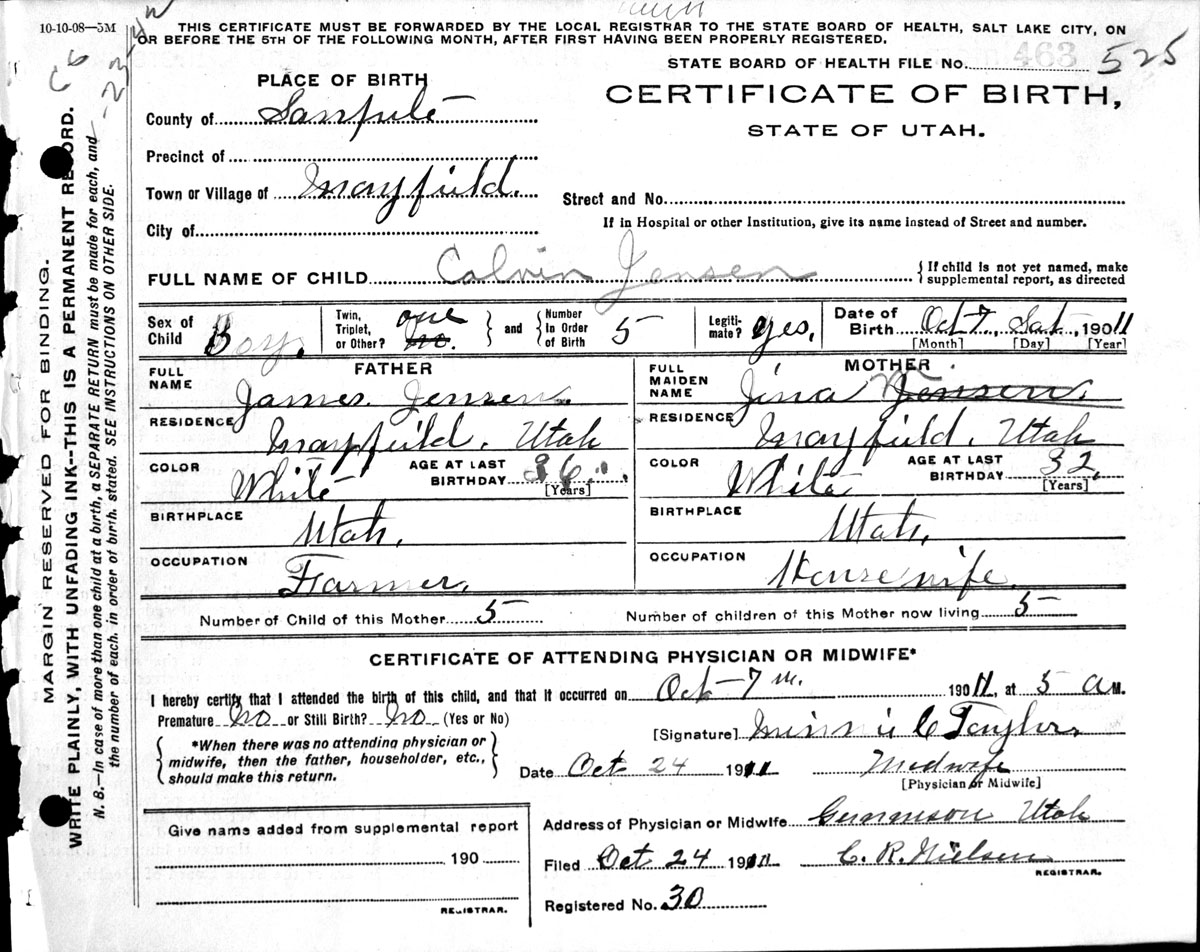 10-10-08—5M
THIS CERTIFICATE MUST BE FORWARDED BY THE LOCAL REGISTRAR TO THE STATE BOARD OF HEALTH, SALT LAKE CITY, ON
OR BEFORE THE 5TH OF THE FOLLOWING MONTH, AFTER FIRST HAVING BEEN PROPERLY REGISTERED.
STATE BOARD OF HEALTH FILE NO. 463 525
PLACE OF BIRTH
CERTIFICATE OF BIRTH,
STATE OF UTAH.
County of Sanpete
Precinct of
Town or Village of Mayfield.
Street and No.
City of
If in Hospital or other Institution, give its name instead of Street and number.
FULL NAME OF CHILD Calvin Jensen
{ If child is not yet named, make
supplemental report, as directed
Sex of Child Boy.
Twin, Triplet, or Other? one no.
} and { Number In Order of Birth 5
Legiti- mate? yes,
Date of Birth Oct 7, Sat, 1911
[Month] [Day] [Year]
FATHER
FULL NAME James Jensen.
RESIDENCE Mayfield. Utah
COLOR White
AGE AT LAST BIRTHDAY 36.
[Years]
BIRTHPLACE Utah.
OCCUPATION Farmer.
MOTHER
FULL MAIDEN NAME Jina Jensen.
RESIDENCE Mayfield. Utah
COLOR White
AGE AT LAST BIRTHDAY 32.
[Years]
BIRTHPLACE Utah.
OCCUPATION Housewife.
Number of Child of this Mother 5
Number of children of this Mother now living 5
CERTIFICATE OF ATTENDING PHYSICIAN OR MIDWIFE*
I hereby certify that I attended the birth of this child, and that it occurred on Oct 7 1911, at 5 A M.
Premature No or Still Birth? No (Yes or No)
{ *When there was no attending physician or
midwife, then the father, householder, etc.,
should make this return. }
[Signature] Minnie C Taylor.
Date Oct 24 1911
Midwife
[Physician or Midwife]
Address of Physician or Midwife Gunnison Utah
Filed Oct 24 1911 C. R. Nielsen
REGISTRAR.
Registered No. 30
Give name added from supplemental report
190
REGISTRAR.
MARGIN RESERVED FOR BINDING.
WRITE PLAINLY, WITH UNFADING INK--THIS IS A PERMANENT RECORD.
N. B.—In case of more than one child at a birth, a SEPARATE RETURN must be made for each, and
the number of each, in order of birth, stated. SEE INSTRUCTIONS ON OTHER SIDE.